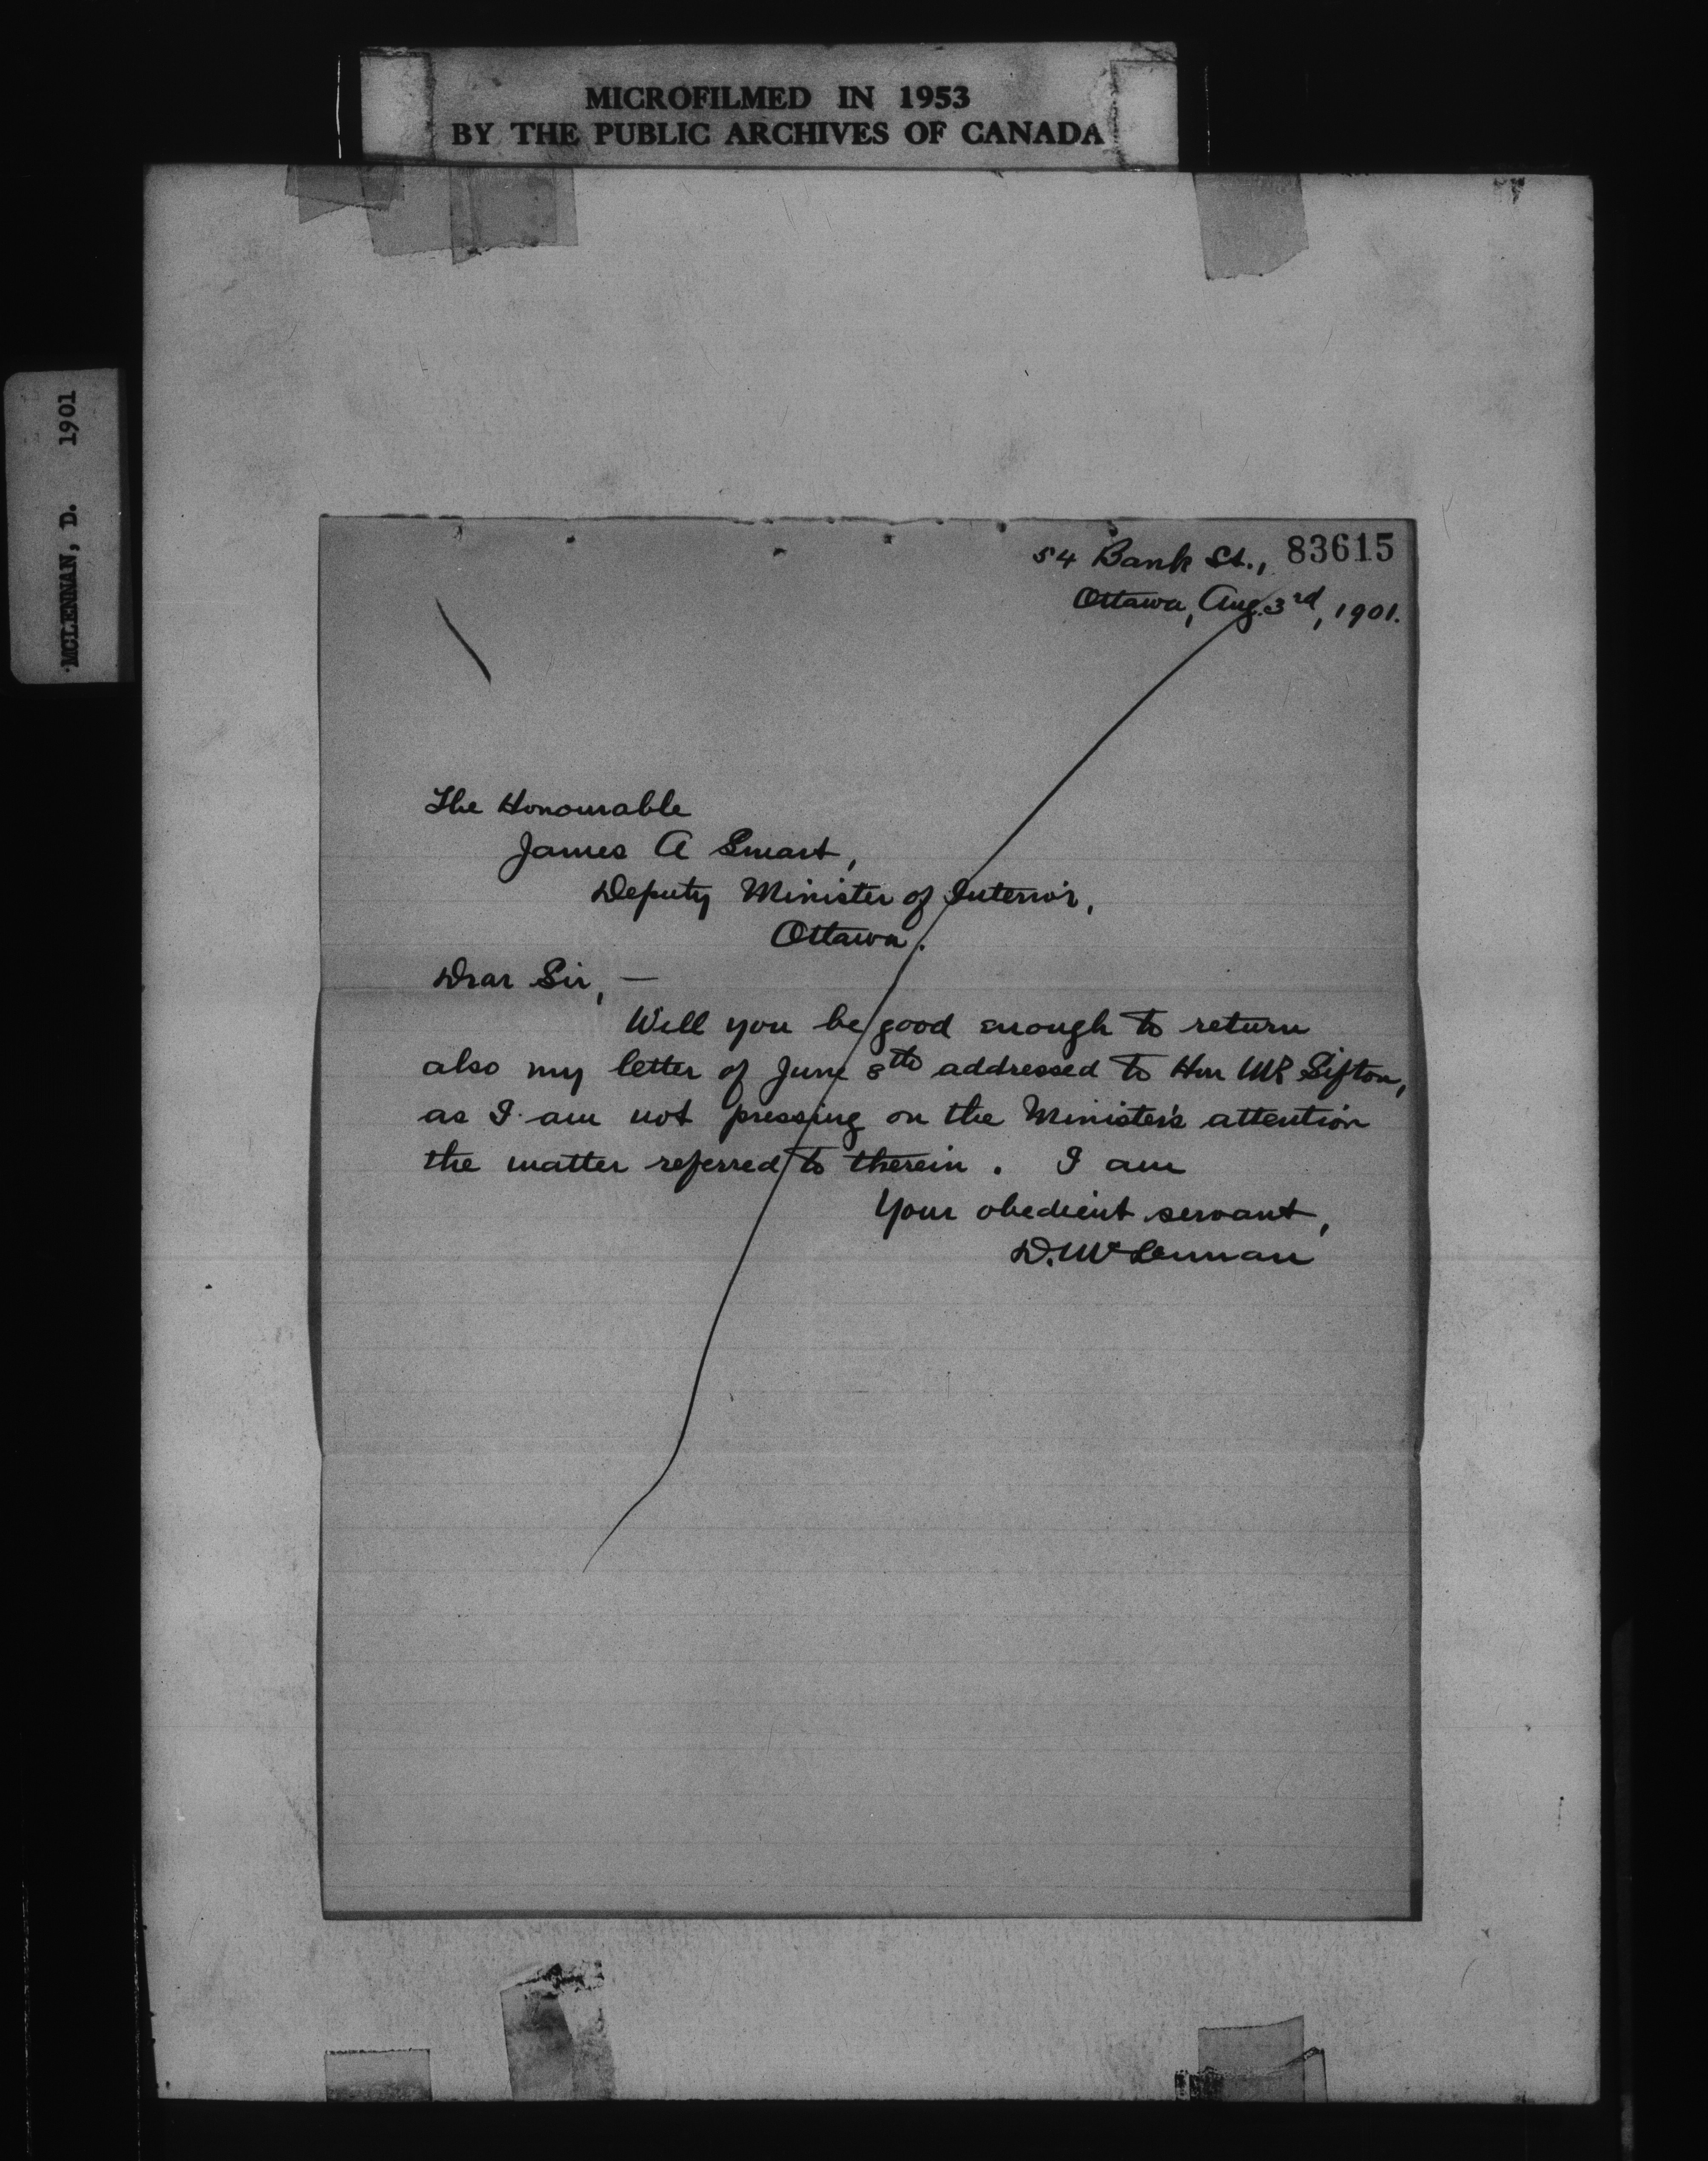 MICROFILMED IN 1953
BY THE PUBLIC ARCHIVES OF CANADA
MCLENNAN, D. 1901
83615
54 Bank St.,
Ottawa, Aug. 3rd, 1901.
The Honourable
James A Smart,
Deputy Minister of Interior,
Ottawa.
Dear Sir, —
Will you be good enough to return
also my letter of June 8th addressed to Hon Mr Sifton,
as I am not pressing on the Minister's attention
the matter referred to therein. I am
Your obedient servant,
D. McLennan